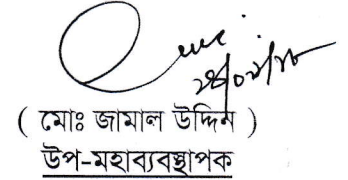 ( মোঃ জামাল উদ্দিন )
উপ-মহাব্যবস্থাপক